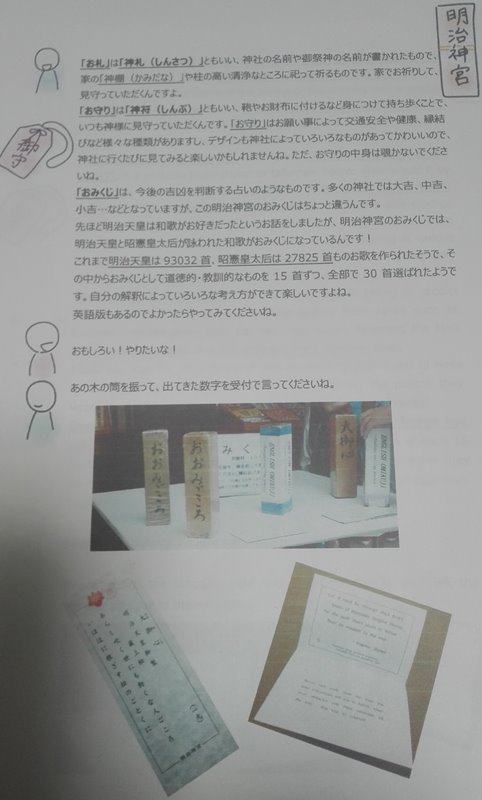 明治神宮
「お札」は「神札（しんさつ）」ともいい、神社の名前や御祭神の名前が書かれたもので、
家の「神棚（かみだな）」や柱の高い清浄なところに祀って祈るものです。家でお祈りして、
見守っていただくんですよ。
「お守り」は「神符（しんぷ）」ともいい、鞄やお財布に付けるなど身につけて持ち歩くことで、
いつも神様に見守っていただくんです。「お守り」はお願い事によって交通安全や健康、縁結
びなど様々な種類がありますし、デザインも神社によっていろいろなものがあってかわいいので、
神社に行くたびに見てみると楽しいかもしれませんね。ただ、お守りの中身は覗かないでくださ
いね。
御守
「おみくじ」は、今後の吉凶を判断する占いのようなものです。多くの神社では大吉、中吉、
小吉…などとなっていますが、この明治神宮のおみくじはちょっと違うんです。
先ほど明治天皇は和歌がお好きだったというお話をしましたが、明治神宮のおみくじでは、
明治天皇と昭憲皇太后が詠まれた和歌がおみくじになっているんです！
これまで明治天皇は 93032 首、昭憲皇太后は 27825 首ものお歌を作られたそうで、そ
の中からおみくじとして道徳的・教訓的なものを 15 首ずつ、全部で 30 首選ばれたようで
す。自分の解釈によっていろいろな考え方ができて楽しいですよね。
英語版もあるのでよかったらやってみてくださいね。
おもしろい！やりたいな！
あの木の筒を振って、出てきた数字を受付で言ってくださいね。
おおみごころ
おおみごころ
みく
ENGLISH OMIKUJI
大御心
ENGLISH OMIKUJI
大御心